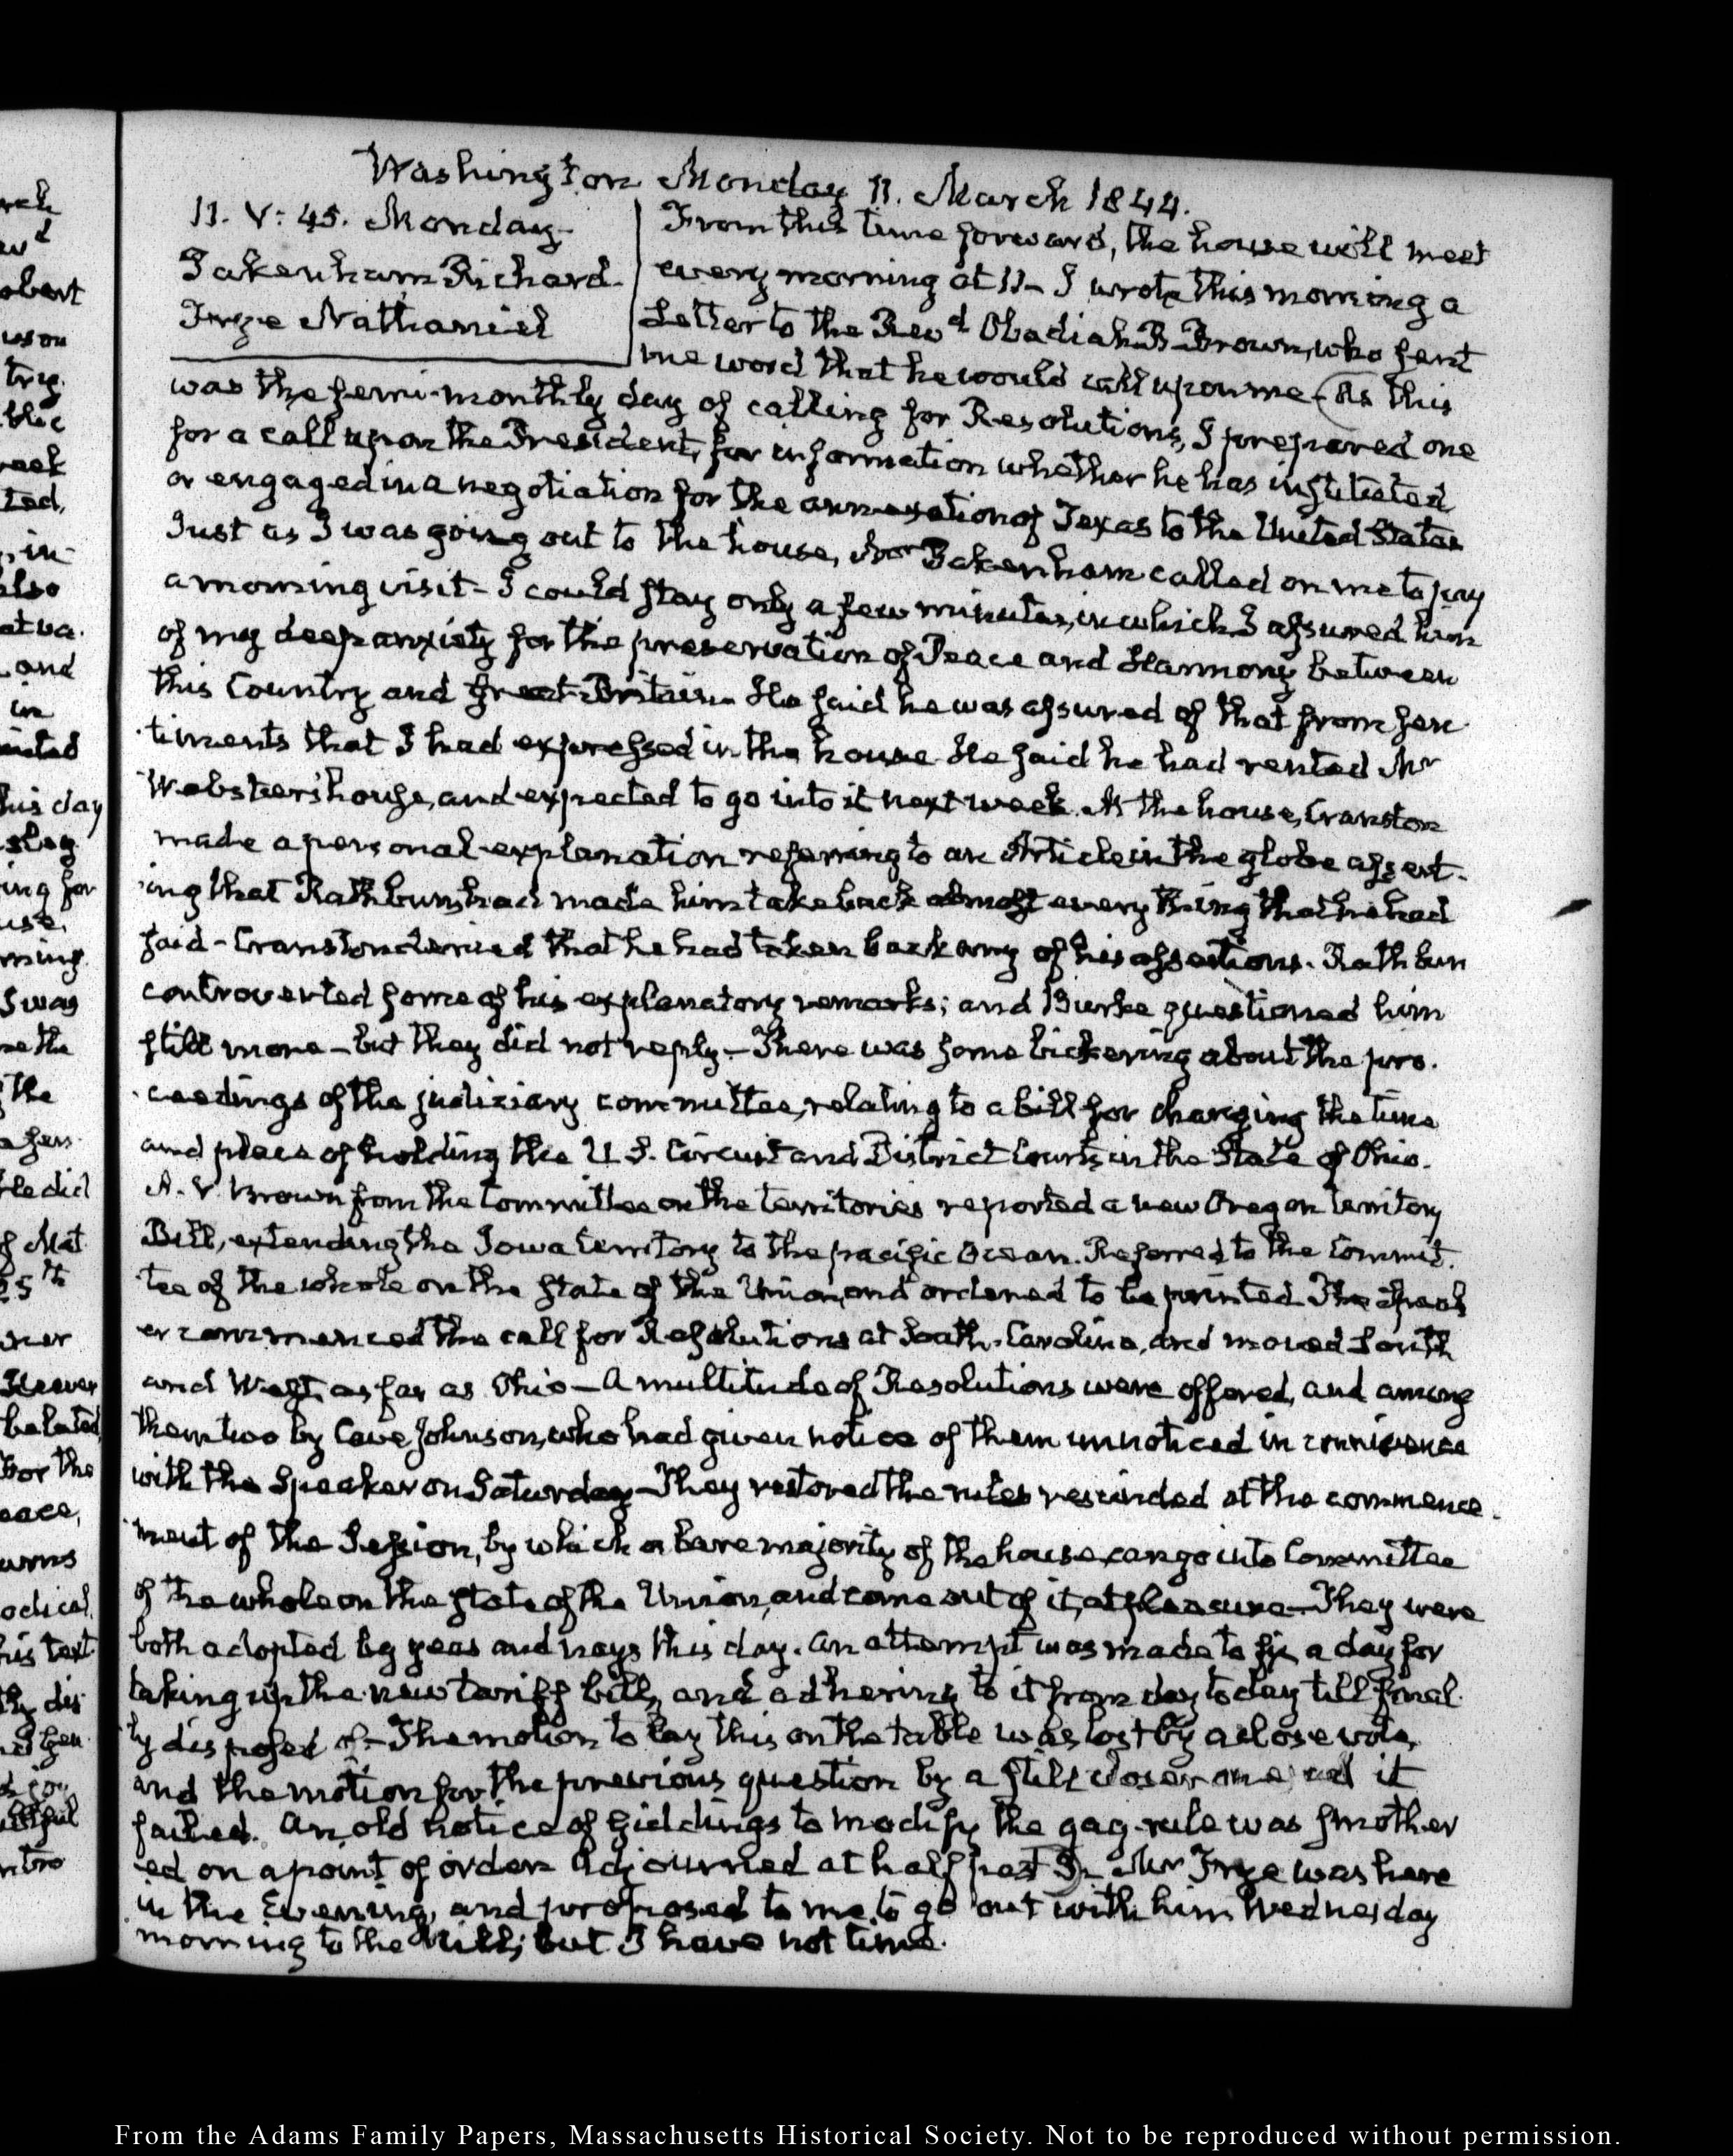 Washington Monday 11. March 1844.
11. V: 45. Monday.
Pakenham Richard.
Frye Nathaniel
From this time forward, the house will meet
every morning at 11 - I wrote this morning a
Letter to the Revd Obadiah B. Brown, who sent
me word that he would call upon me - As this
was the semi-monthly day of calling for Resolutions, I prepared one
for a call upon the President, for information whether he has instituted
or engaged in a negotiation for the annexation of Texas to the United States
Just as I was going out to the house, Mr Pakenham called on me to pay
a morning visit - I could stay only a few minutes, in which I assured him
of my deep anxiety for the preservation of Peace and Harmony between
this Country and Great-Britain. He said he was assured of that from sen-
timents that I had expressed in the house He said he had rented Mr
Webster's house, and expected to go into it next week. At the house, Cranston
made a personal explanation referring to an Article in the globe assert-
ing that Rathbun had made him take back almost every thing that he had
said - Cranston denied that he had taken back any of his assertions. Rathbun
controverted some of his explanatory remarks; and Burke questioned him
still more - but they did not reply - There was some bickering about the pro-
ceedings of the judiciary committee, relating to a bill for changing the time
and place of holding the U.S. Circuit and District Courts in the State of Ohio.
A. V. Brown from the Committee on the territories reported a new Oregon territory
Bill, extending the Iowa territory to the pacific Ocean. Referred to the Commit-
tee of the whole on the State of the Union, and ordered to be printed The Speak
er commenced the call for Resolutions at South-Carolina, and moved South
and West, as far as Ohio - A multitude of Resolutions were offered, and among
them two by Cave Johnson, who had given notice of them unnoticed in connivance
with the Speaker on Saturday - They restored the rules rescinded at the commence-
ment of the Session, by which a bare majority of the house, can go into Committee
of the whole on the state of the Union, and come out of it, at pleasure - They were
both adopted by yeas and nays this day. An attempt was made to fix a day for
taking up the new tariff bill, and adhering to it from day to day till final-
ly disposed of - The motion to lay this on the table was lost by a close vote,
and the motion for the previous question by a still closer one and it
failed. An old notice of Giddings to modify the gag-rule was smother
ed on a point of order Adjourned at half past 3. Mr Frye was here
in the Evening, and proposed to me to go out with him Wednesday
morning to the Mill; but I have not time.
From the Adams Family Papers, Massachusetts Historical Society. Not to be reproduced without permission.